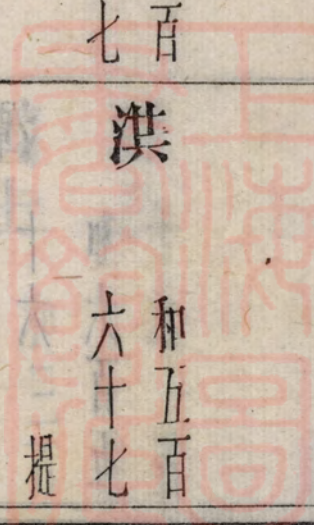 百
七
洪
和五百
六十七
提